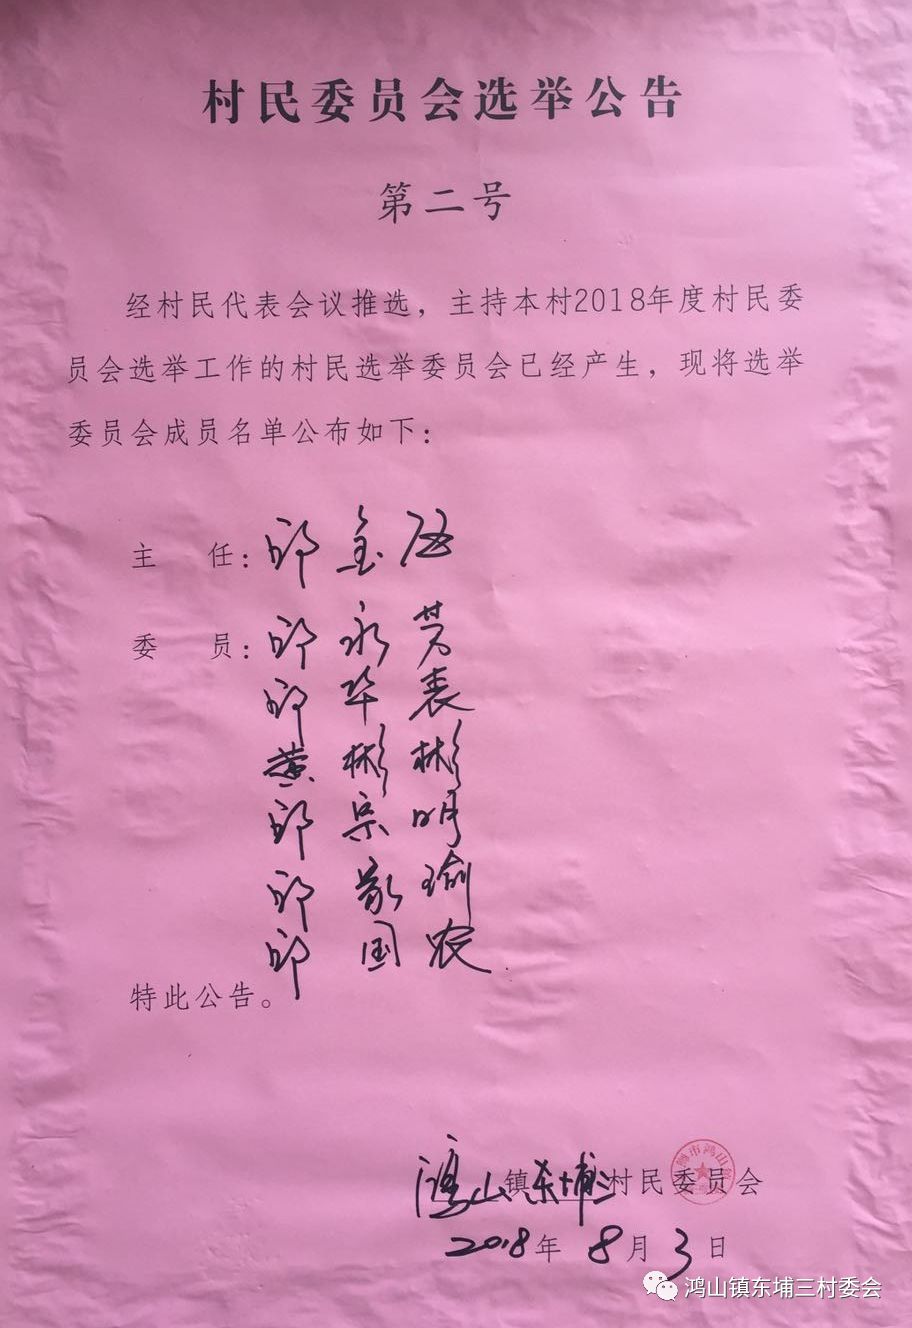 村民委员会选举公告
第二号
经村民代表会议推选，主持本村2018年度村民委
员会选举工作的村民选举委员会已经产生，现将选举
委员会成员名单公布如下：
主 任：邱金伍
委 员：邱永芳
邱华表
黄彬彬
邱宗明
邱瑜
邱国农
特此公告。
鸿山镇东埔三村民委员会
2018年8月3日
市鸿山
鸿山镇东埔三村委会